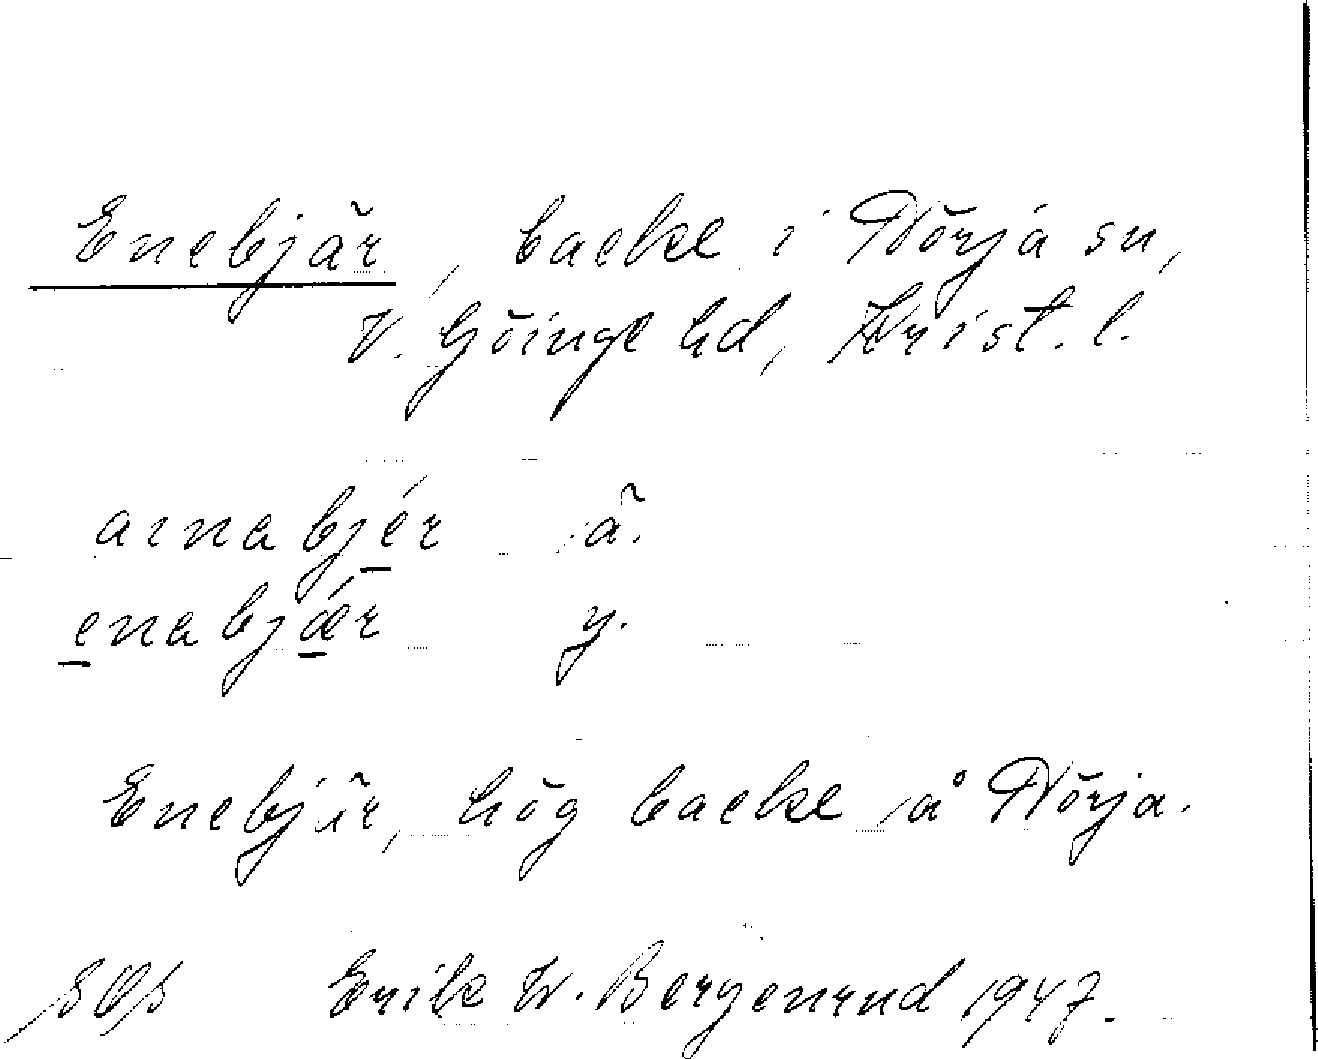 Enebjär, backe i Nörja sn,
V. Göinge hd, Krist. l.
arnabjér ä.
enabjǽr y.
Enebjär, hög backe å Nörja.
Erik W. Bergenrud 1947.